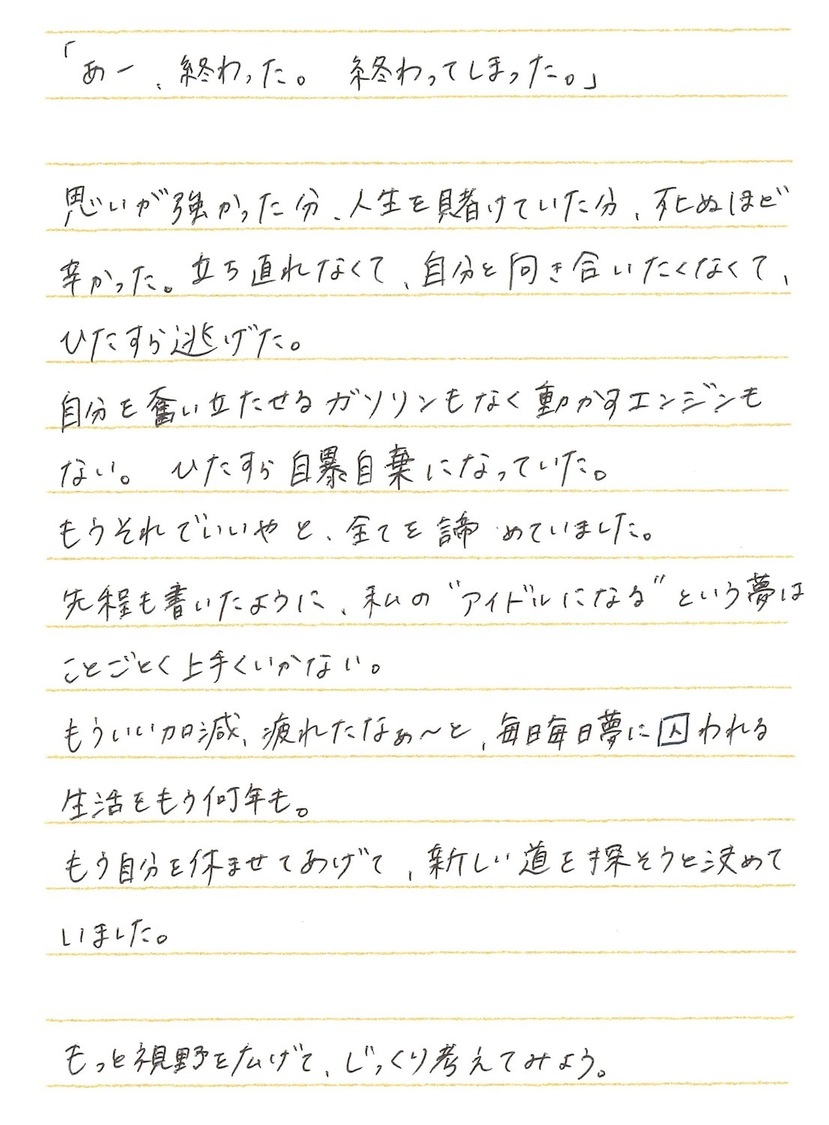 「あー、終わった。 終わってしまった。」
思いが強かった分、人生を賭けていた分、死ぬほど
辛かった。立ち直れなくて、自分と向き合いたくなくて、
ひたすら逃げた。
自分を奮い立たせるガソリンもなく動かすエンジンも
ない。 ひたすら自暴自棄になっていた。
もうそれでいいやと、全てを諦めていました。
先程も書いたように、私の"アイドルになる"という夢は
ことごとく上手くいかない。
もういい加減、疲れたなぁ〜と、毎日毎日夢に囚われる
生活をもう何年も。
もう自分を休ませてあげて、新しい道を探そうと決めて
いました。
もっと視野を広げて、じっくり考えてみよう。